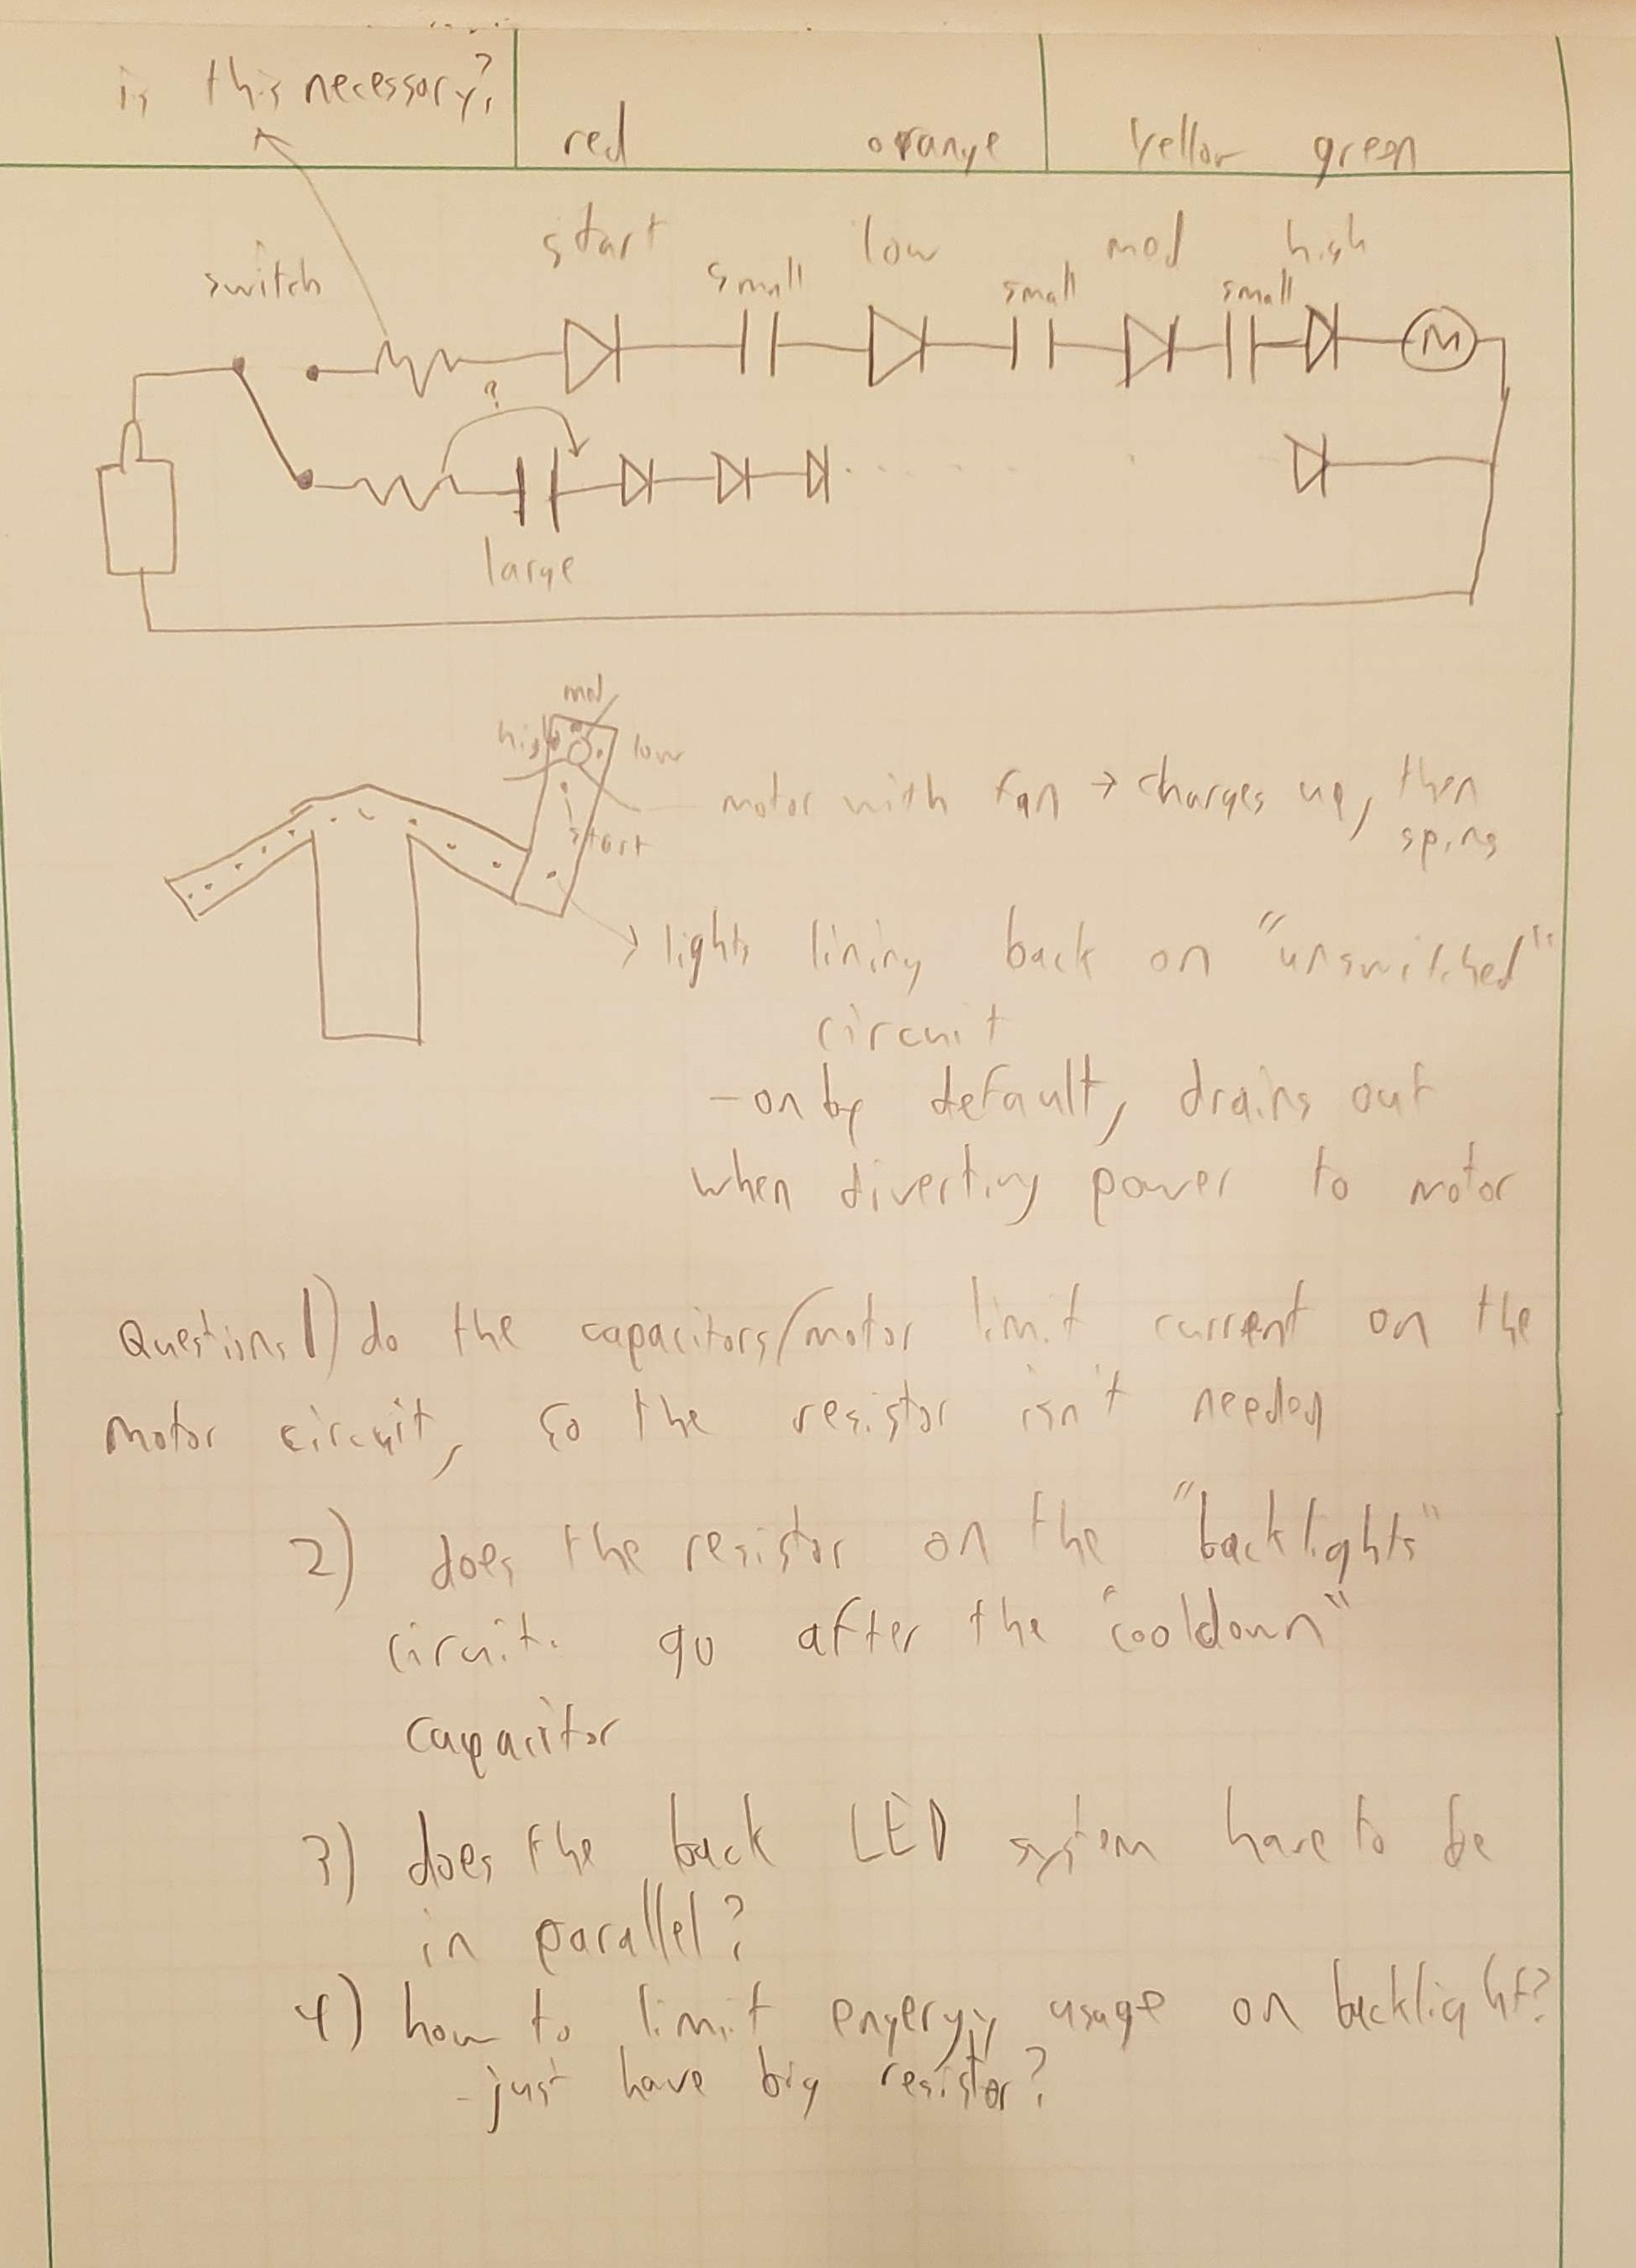 is this necessary?
red orange yellow green
start low med high
switch small small small
M
?
large
med
high low
motor with fan → charges up, then
start spins
→ lights lining back on "unswitched"
circuit
- on by default, drains out
when diverting power to motor
Questions 1) do the capacitors/motor limit current on the
motor circuit, so the resistor isn't needed
2) does the resistor on the "backlights"
circuit go after the "cooldown"
capacitor
3) does the back LED system have to be
in parallel?
4) how to limit engergy usage on backlight?
- just have big resistor?